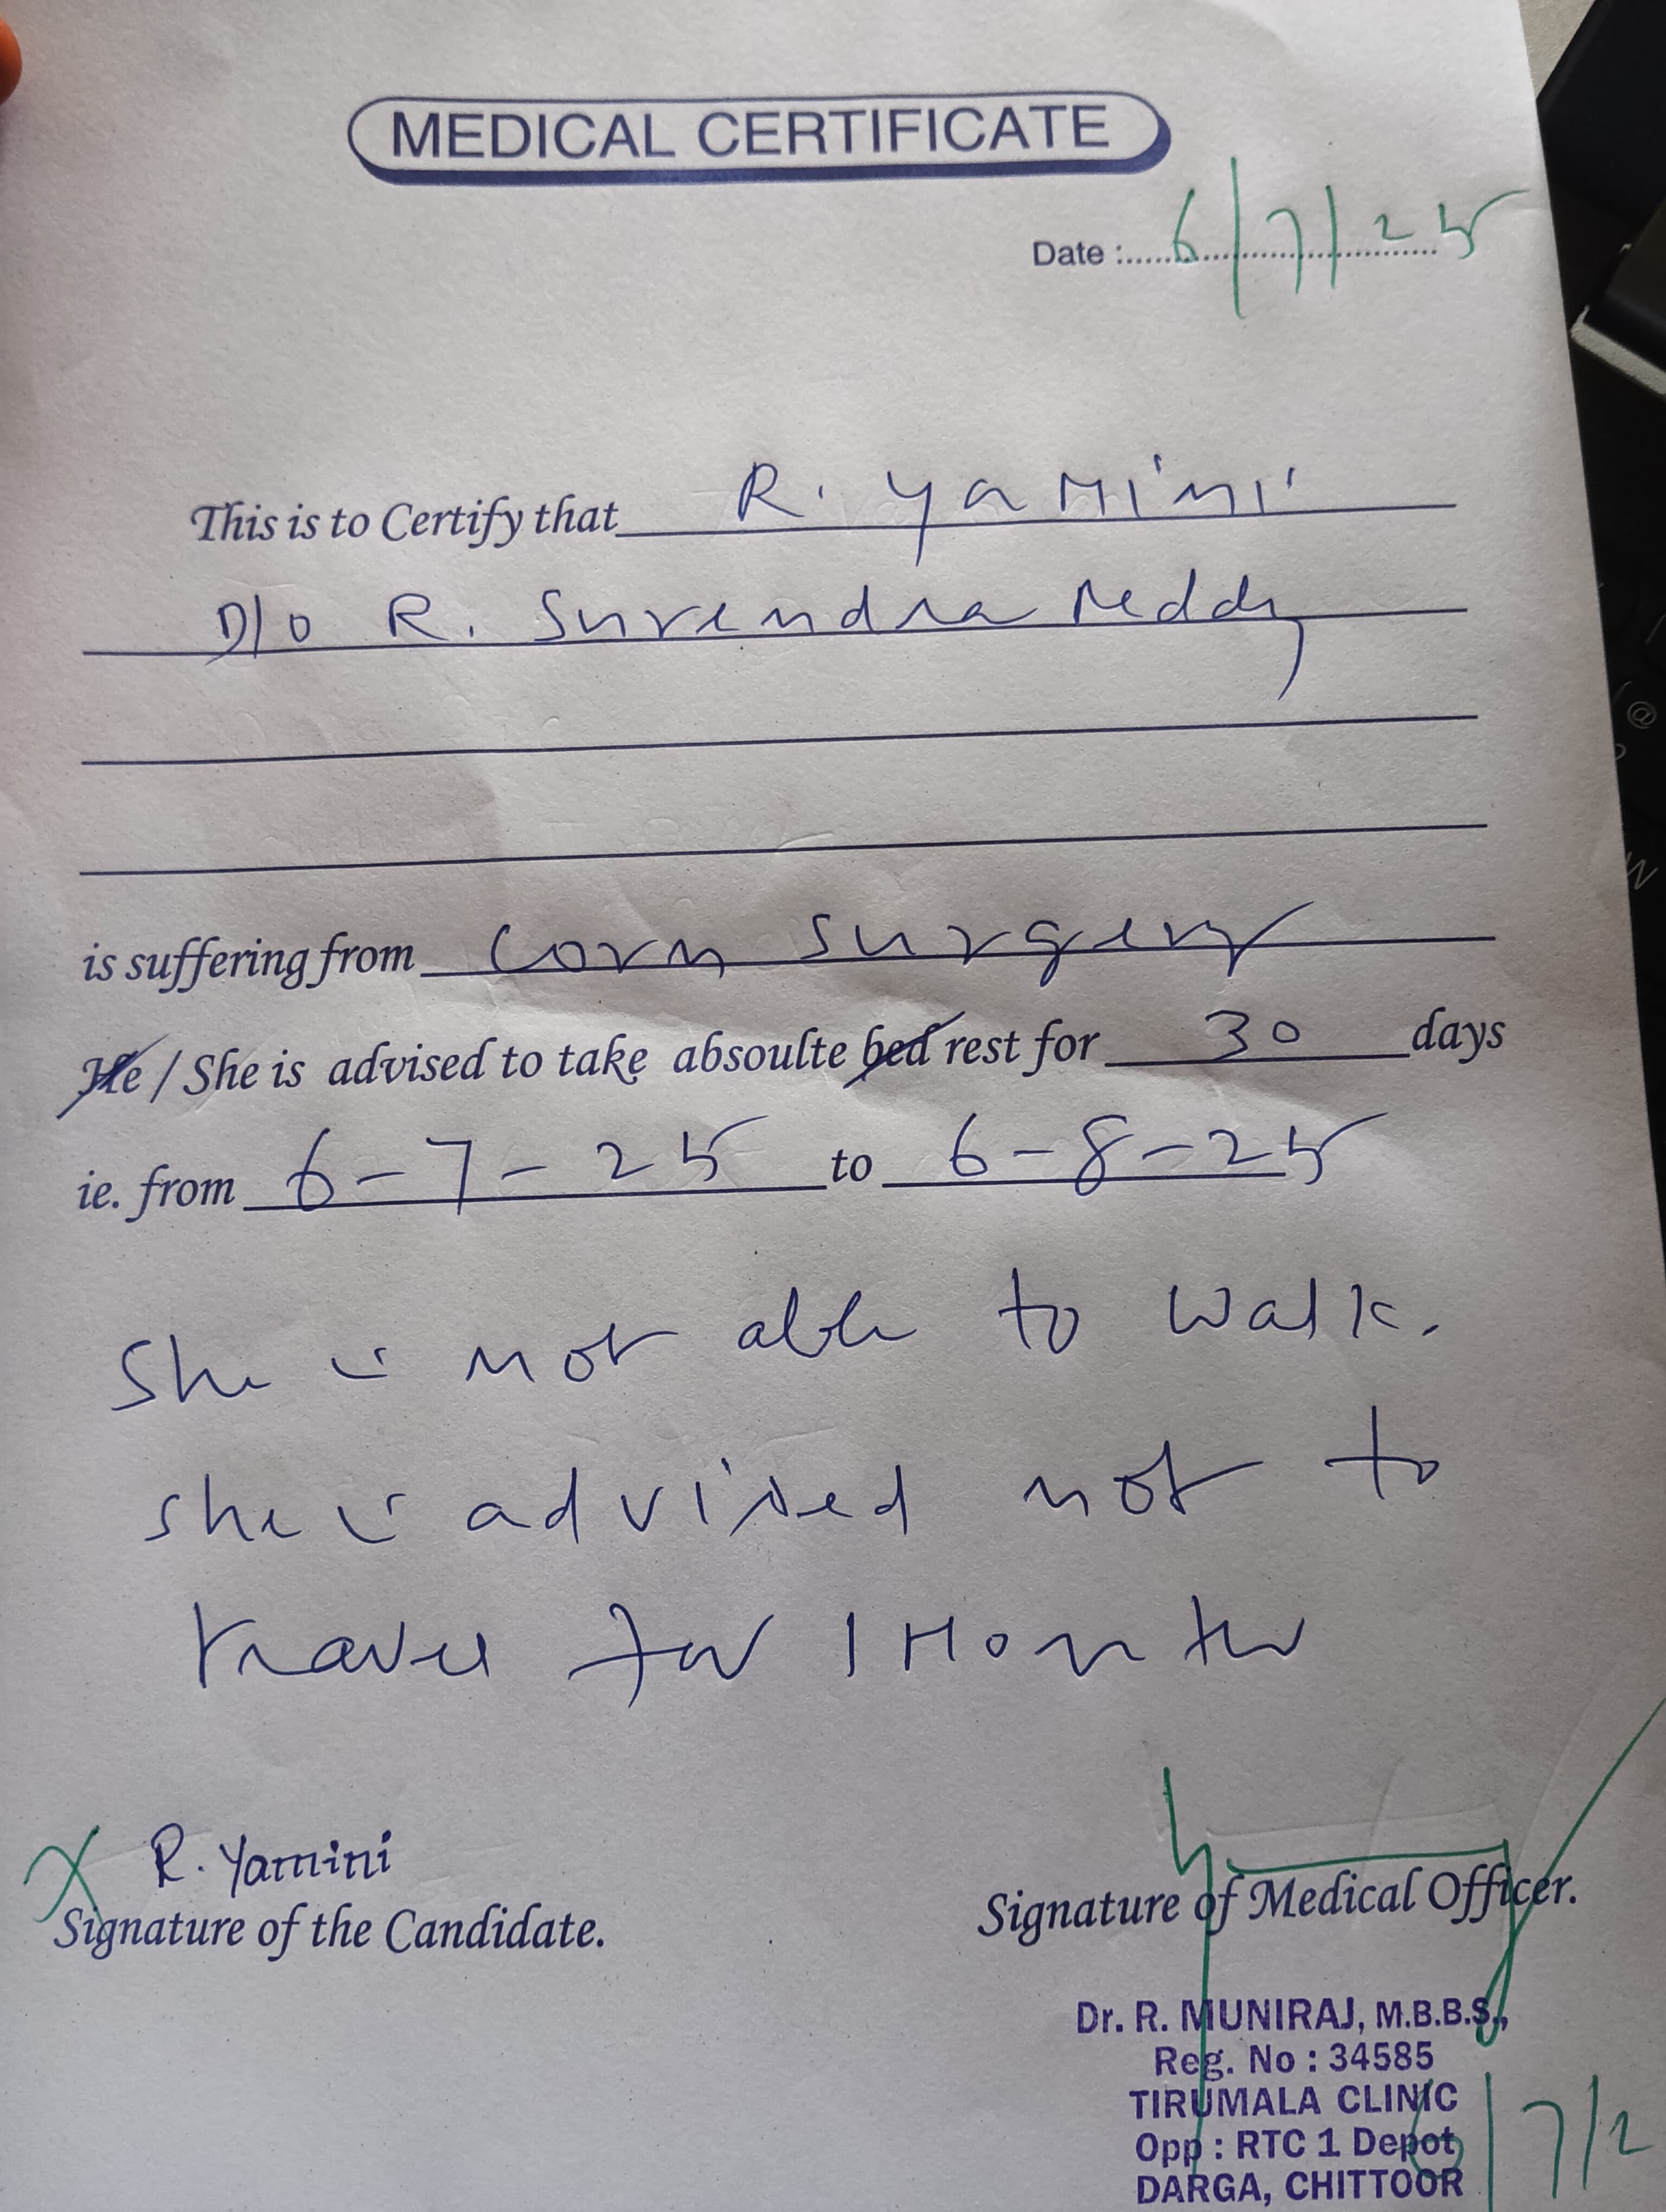 MEDICAL CERTIFICATE
Date :.....6/7/25
This is to Certify that R. Yamini
D/o R. Surendra Reddy
is suffering from Corn Surgery
He / She is advised to take absoulte bed rest for 30 days
ie. from 6-7-25 to 6-8-25
She is not able to walk.
she is advised not to
travel for 1 Month
R. Yamini
Signature of the Candidate.
Signature of Medical Officer.
Dr. R. MUNIRAJ, M.B.B.S.,
Reg. No : 34585
TIRUMALA CLINIC
Opp : RTC 1 Depot
DARGA, CHITTOOR
6/7/2